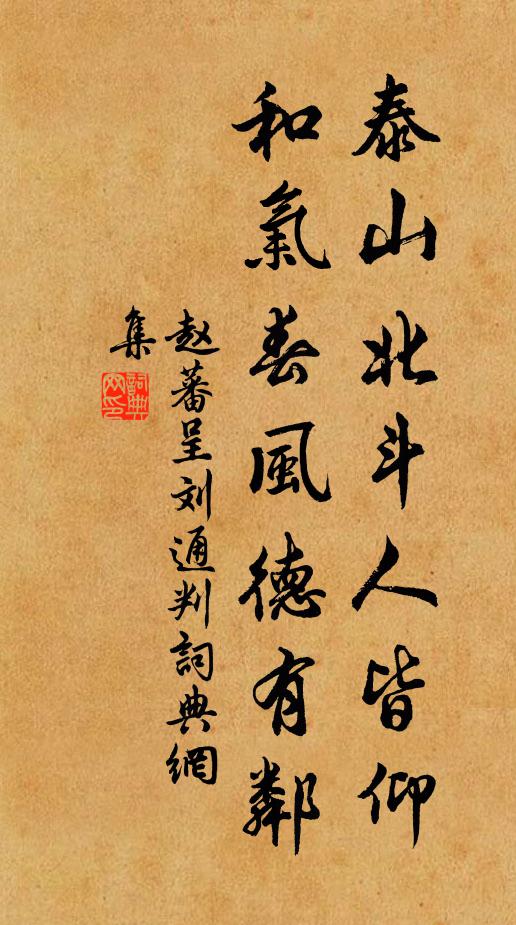 泰山北斗人皆仰
和氣春風德有鄰
赵蕃呈刘通判詞典網
集
詞典
网印